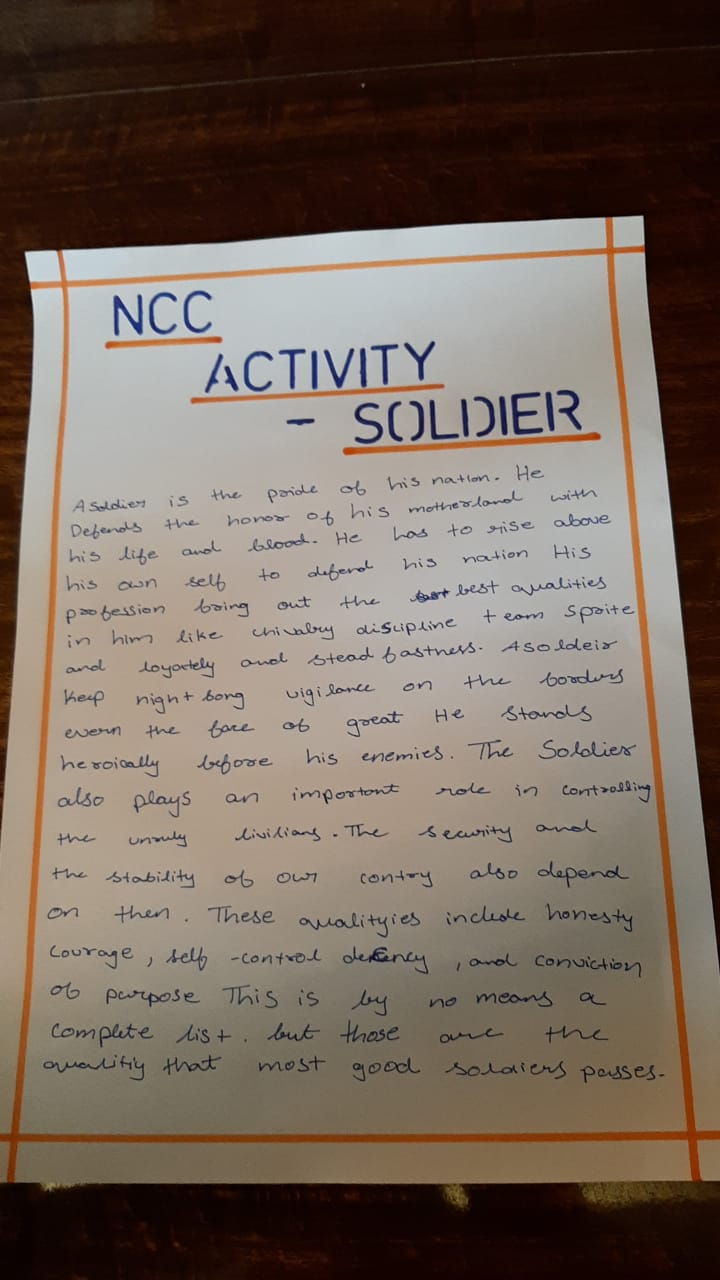 NCC
ACTIVITY
- SOLDIER
A Soldier is the pride of his nation. He
Defends the honor of his motherland with
his life and blood. He has to rise above
his own self to defend his nation His
profession bring out the best qualities
in him like chivalry discipline team sprite
and loyartely and steadfastness. A soldeir
keep night bong vigilance on the borders
evern the face of great He stands
heroically before his enemies. The Soldier
also plays an important role in controlling
the unruly livilians. The security and
the stability of our contry also depend
on then. These qualityies include honesty
courage, self-control decency, and conviction
of purpose This is by no means a
complete list. but those are the
qualitiy that most good soldiers passes.